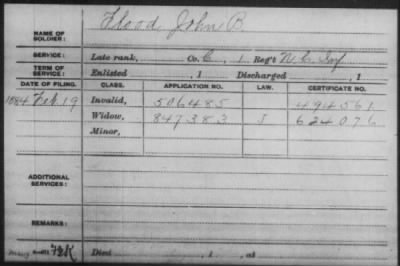 NAME OF SOLDIER: Flood, John B.
SERVICE: Late rank, Co. C, 1 Reg't N.C. Inf
TERM OF SERVICE: Enlisted , 1 Discharged , 1
DATE OF FILING. CLASS. APPLICATION NO. LAW. CERTIFICATE NO.
1884 Feb. 19 Invalid, 506485 494561
Widow, 847383 J 624076
Minor,
ADDITIONAL SERVICES:
REMARKS:
Died , 1 , at